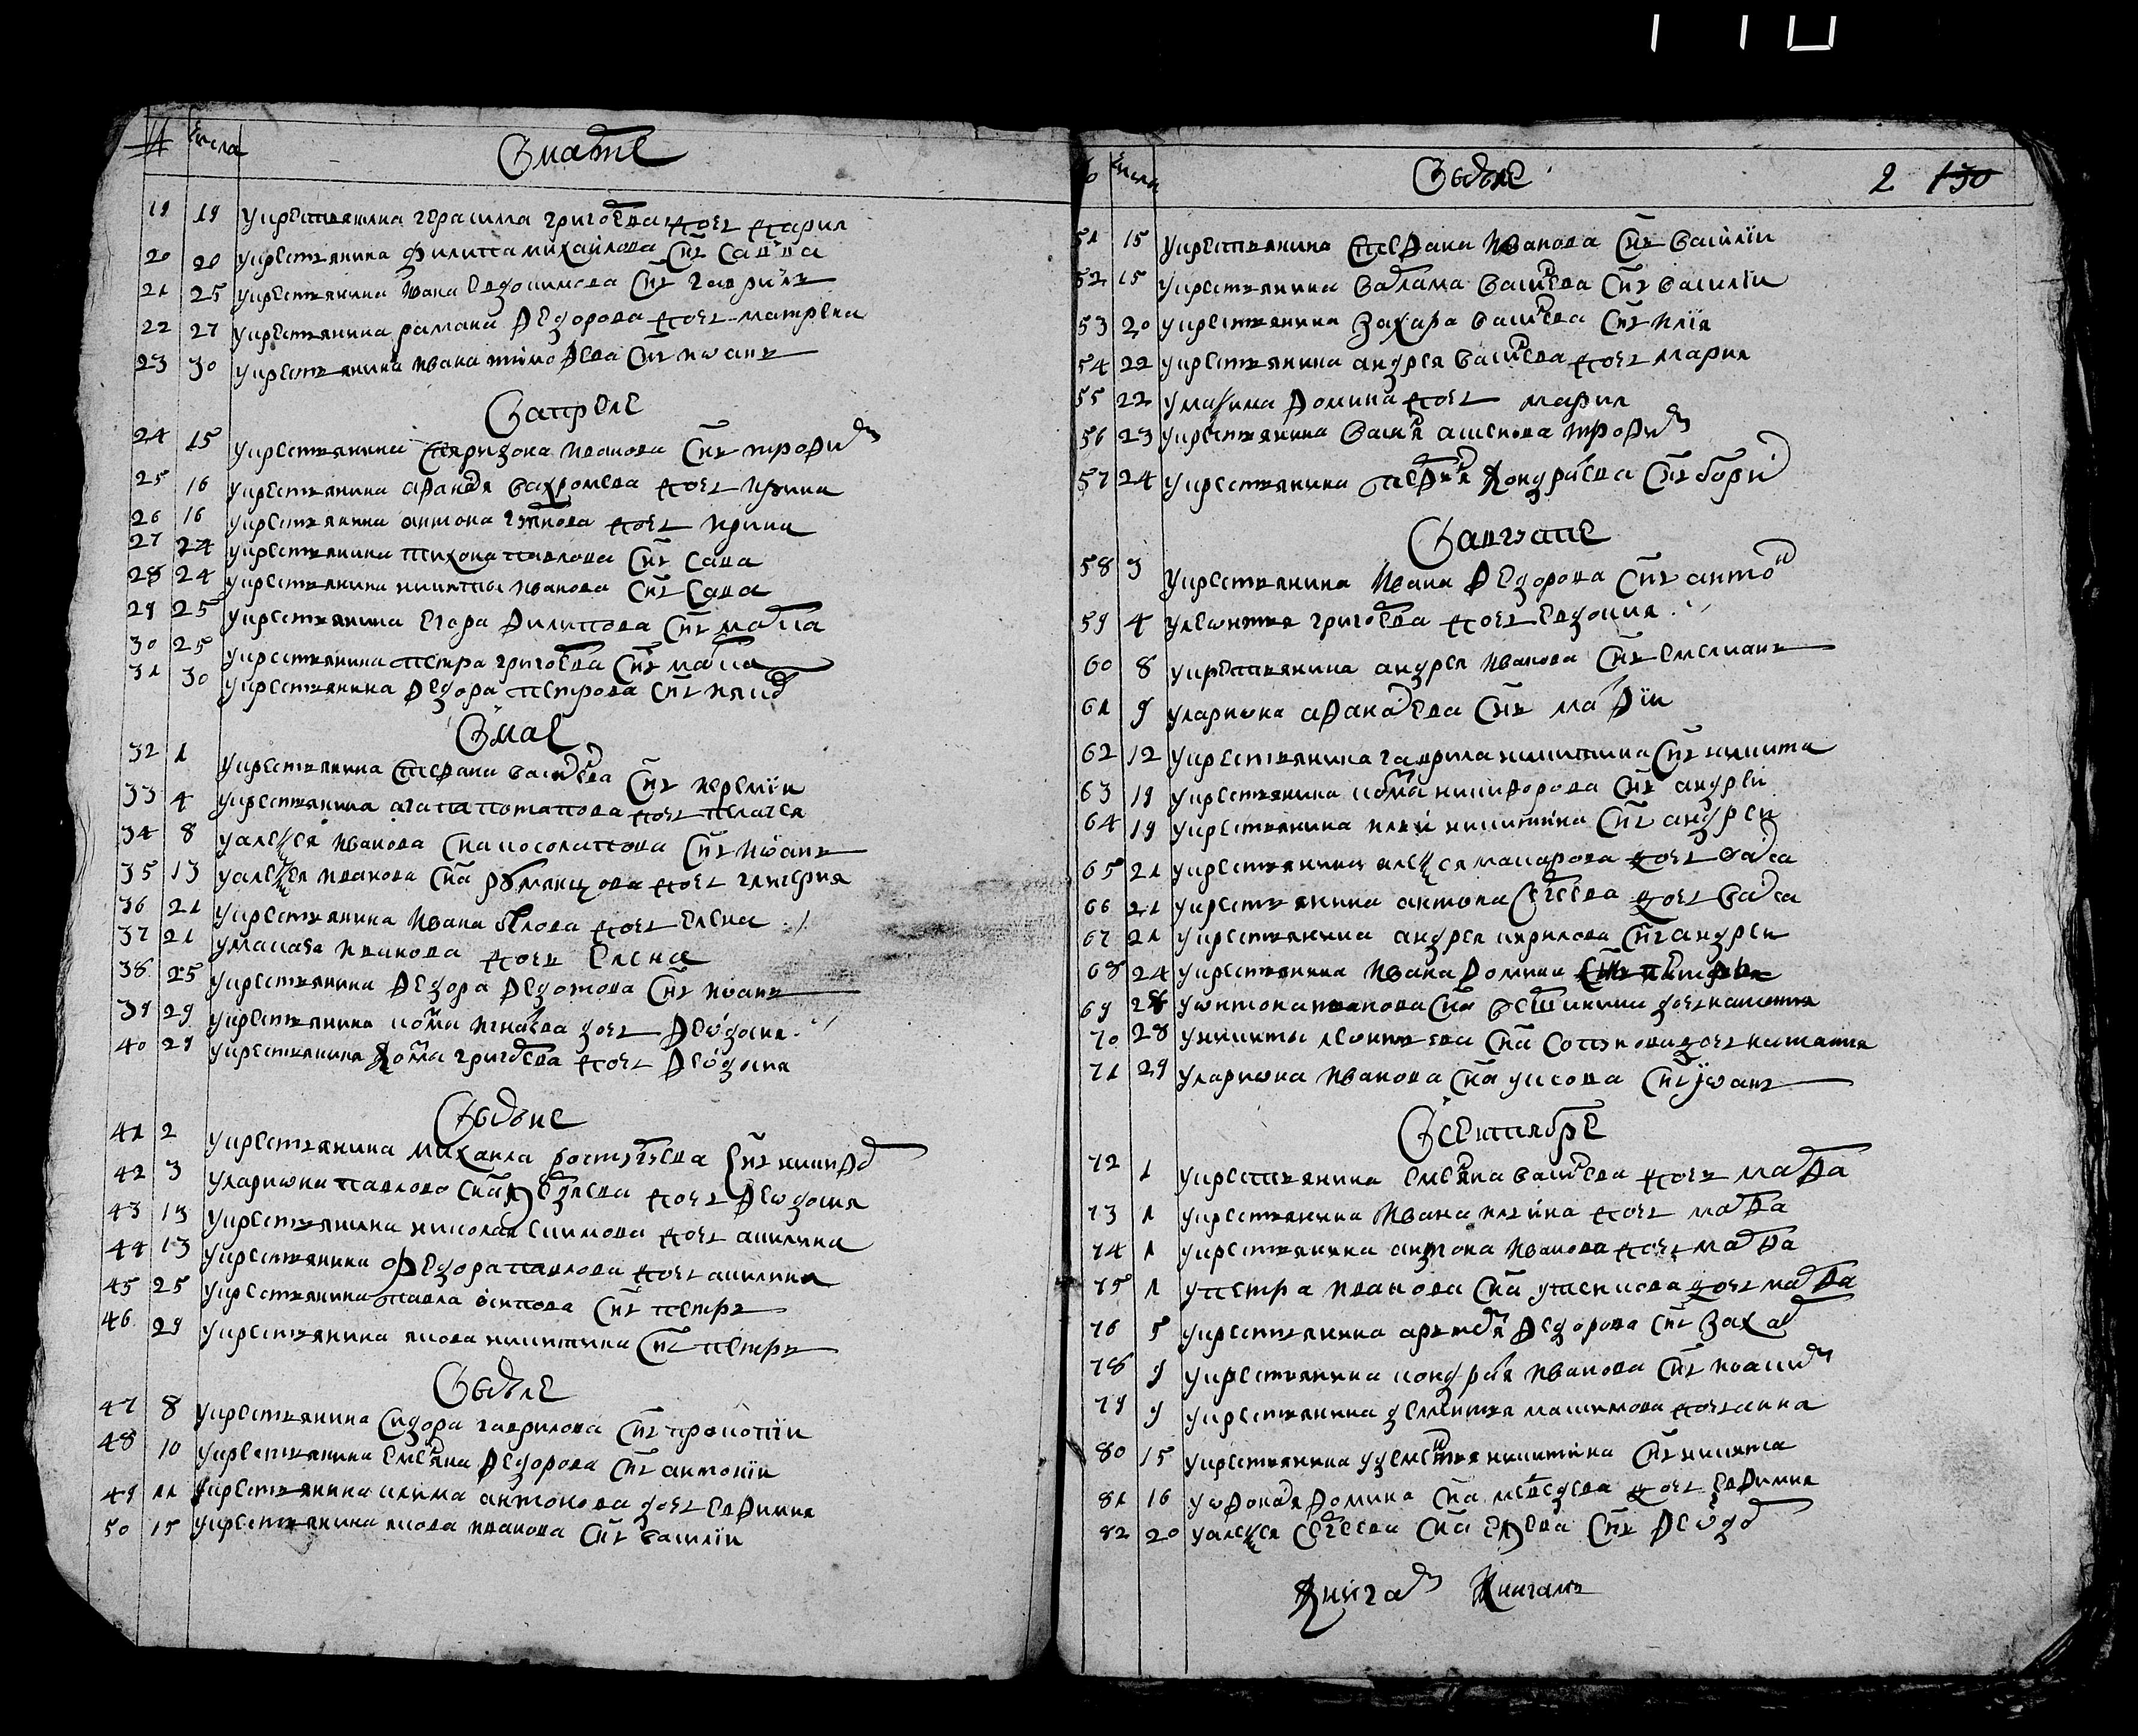 № Числа Вмарте
19 19 укрестьянина герасима григорьева дочь дария
20 20 укрестьянина филиппа михаилова снъ савва
21 25 укрестьянина ивана евдокимова снъ гавриилъ
22 27 укрестьянина рамана ѳедорова дочь матрена
23 30 укрестьянина ивана тимоѳеева снъ иоанъ
Вапреле
24 15 укрестьянина спиридона иванова снъ троѳим
25 16 укрестьянина аѳанася вахромеева дочь ирина
26 16 укрестьянина антона дочь ирина
27 24 укрестьянина тихона павлова снъ сава
28 24 укрестьянина никиты иванова снъ сава
29 25 укрестьянина егора ѳилипова снъ марка
30 25 укрестьянина петра григорева снъ марка
31 30 укрестьянина ѳедора петрова снъ
Вмае
32 1 укрестьянина стеѳана василева снъ иеремѣи
33 4 укрестьянина агапа потапова дочь пелагея
34 8 уалексея иванова сна косолапова снъ иоанъ
35 13 уалексея иванова сна румянцова дочь гликерия
36 21 укрестьянина ивана белова дочь елена
37 21 умакара иванова дочь елена
38 25 укрестьянина ѳедора ѳедотова снъ иоанъ
39 29 укрестьянина козма игнатева дочь ѳеодосия
40 29 укрестьянина козма григорева дочь ѳеодосия
Виюне
41 2 укрестьянина михаила снъ никиѳор
42 3 улариона павлова сна дочь ѳеодосия
43 13 укрестьянина николая екимова дочь акилина
44 13 укрестьянина ѳедора павлова дочь акилина
45 25 укрестьянина павла осипова снъ петръ
46 29 укрестьянина якова никитина снъ петръ
Виюле
47 8 укрестьянина сидора гаврилова снъ прокопѣи
48 10 укрестьянина емеляна ѳедорова снъ антонѣи
49 11 укрестьянина клима антонова дочь евѳимия
50 15 укрестьянина якова иванова снъ василѣи
Числа Виюле 2 130
51 15 укрестьянина стеѳана иванова снъ василѣи
52 15 укрестьянина варлама василева снъ василѣи
53 20 укрестьянина захара василева снъ илѣя
54 22 укрестьянина андрея василева дочь мария
55 22 умаѯима ѳомина дочь мария
56 23 укрестьянина василя аксенова троѳим
57 24 укрестьянина кондратева снъ борис
Вавгусте
58 3 укрестьянина ивана ѳедорова снъ антон
59 4 улеонтья григорева дочь евдокия
60 8 укрестьянина андрея иванова снъ емелианъ
61 9 улариона аѳанасева снъ матѳѣи
62 12 укрестьянина гаврила никитина снъ никита
63 19 укрестьянина козма никиѳорова снъ андреи
64 19 укрестьянина илѣи никитина снъ андреи
65 21 укрестьянина алеѯея макарова дочь васса
66 21 укрестьянина антона сергеева дочь васса
67 21 укрестьянина андрея кирилова снъ андреи
68 24 укрестьянина ивана ѳомина
69 28 уантона иванова сна дочь наталия
70 28 уникиты леонтьева сна дочь наталия
71 29 улариона иванова сна усова снъ иоанъ
Всентябре
72 1 укрестьянина емеляна василева дочь марѳа
73 1 укрестьянина ивана илина дочь марѳа
74 1 укрестьянина антона иванова дочь марѳа
75 1 упетра иванова сна дочь марѳа
76 5 укрестьянина артемя ѳедорова снъ захар
78 9 укрестьянина кондратя иванова снъ иоаким
79 9 укрестьянина дементья маѯимова дочь анна
80 15 укрестьянина удементья никитина снъ никита
81 16 уаѳонася ѳомина сна медведева дочь евѳимия
82 20 уалексея сергеева сна снъ ѳеодор
книгам книгамъ